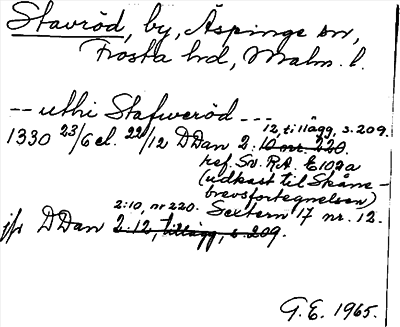 Stavröd, by, Äspinge sn,
Frosta hd, Malm. l.
-- uthi Stafweröd ---
12, tillägg, s. 209.
1330 23/6 el. 22/12 DDan 2: 10 nr. 220.
ref. Sv. R.A. E 102a
(udkast til Skåne-
brevsfortegnelsen)
Sextern 17 nr. 12.
2:10, nr 220.
jfr DDan 2:12, tillägg, s. 209.
G.E. 1965.